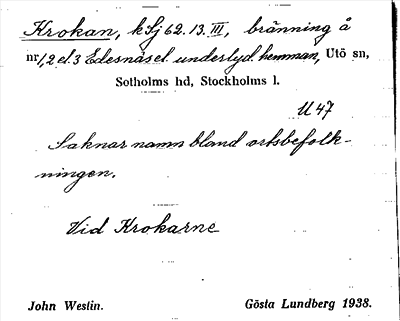 Krokan, k Sj 62.13.III, bränning å
nr 1, 2 el. 3 Edesnäs el. underlyd. hemman, Utö sn,
Sotholms hd, Stockholms l.
U 47
Saknar namn bland ortsbefolk-
ningen.
Vid Krokarne
John Westin. Gösta Lundberg 1938.